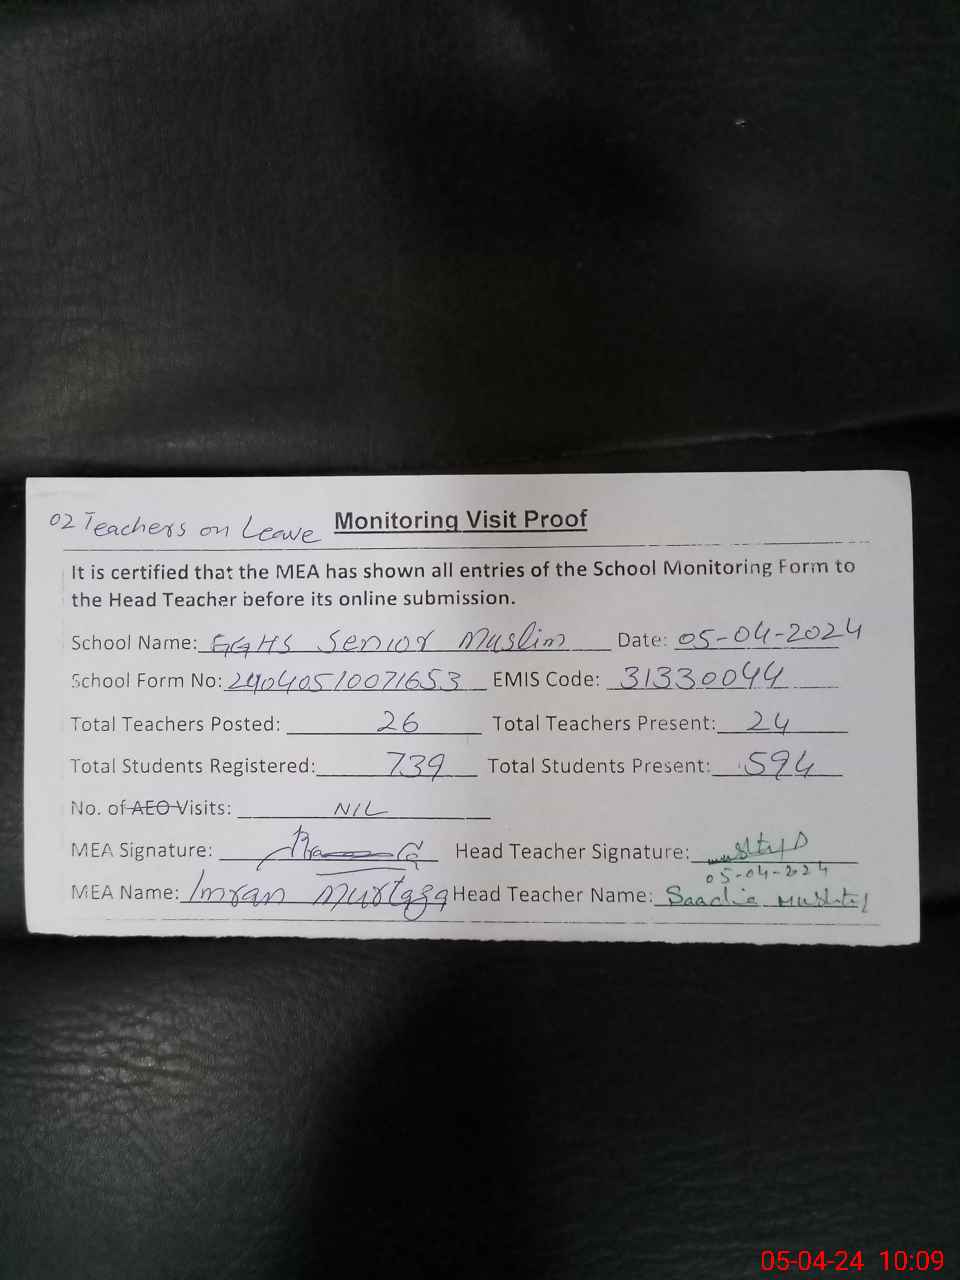 02 Teachers on Leave Monitoring Visit Proof
It is certified that the MEA has shown all entries of the School Monitoring Form to
the Head Teacher before its online submission.
School Name: GGHS Senior Muslim Date: 05-04-2024
School Form No: 24040510071653 EMIS Code: 31330044
Total Teachers Posted: 26 Total Teachers Present: 24
Total Students Registered: 739 Total Students Present: 594
No. of AEO Visits: NIL
MEA Signature: Head Teacher Signature:
05-04-2024
MEA Name: Imran Murtaza Head Teacher Name: Saadia
05-04-24 10:09